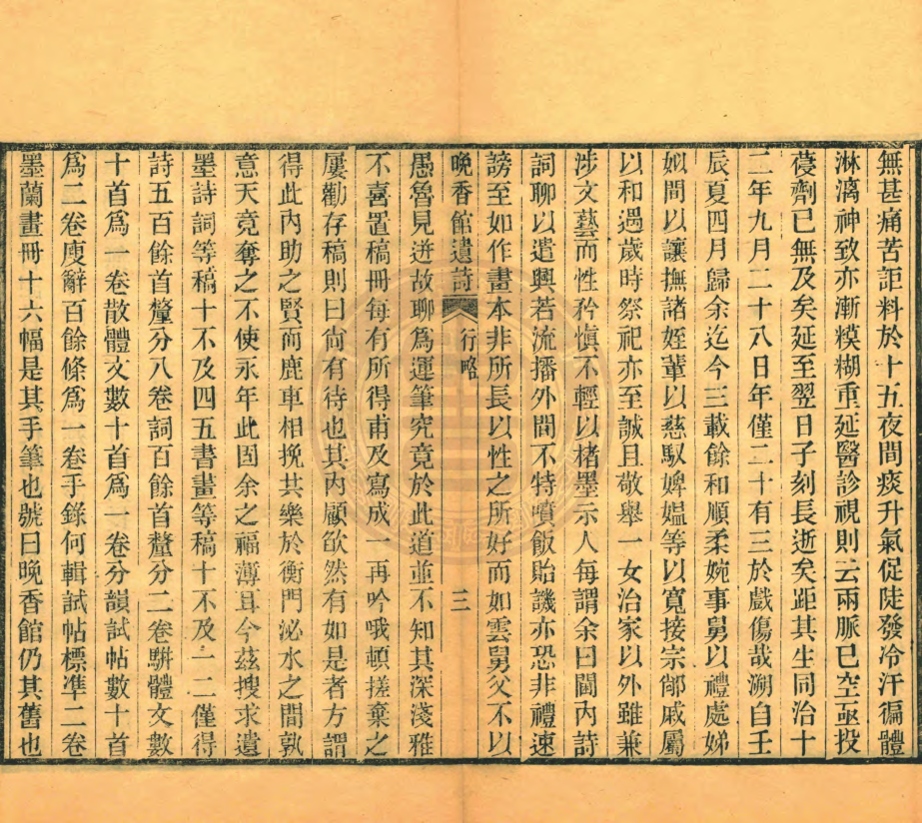 無甚痛苦詎料於十五夜間痰升氣促陡發冷汗徧體
淋漓神致亦漸糢糊重延醫診視則云兩脈已空亟投
蓡劑已無及矣延至翌日子刻長逝矣距其生同治十
二年九月二十八日年僅二十有三於戲傷哉溯自壬
辰夏四月歸余迄今三載餘和順柔婉事舅以禮處娣
姒間以讓撫諸姪輩以慈馭婢媼等以寬接宗鄰戚屬
以和遇歲時祭祀亦至誠且敬舉一女治家以外雖兼
涉文藝而性矜慎不輕以楮墨示人每謂余曰閫內詩
詞聊以遣興若流播外間不特噴飯貽譏亦恐非禮速
謗至如作畫本非所長以性之所好而如雲舅父不以
晚香館遺詩 行略 三
愚魯見迸故聊爲運筆究竟於此道並不知其深淺雅
不喜置稿冊每有所得甫及寫成一再吟哦頓搓棄之
屢勸存稿則曰尙有待也其內顧欿然有如是者方謂
得此內助之賢而鹿車相挽其樂於衡門泌水之間孰
意天竟奪之不使永年此固余之福薄耳今茲搜求遺
墨詩詞等稿十不及四五書畫等稿十不及一二僅得
詩五百餘首釐分八卷詞百餘首釐分二卷駢體文數
十首爲一卷散體文數十首爲一卷分韻試帖數十首
爲二卷廋辭百餘條爲一卷手錄何輯試帖標準二卷
墨蘭畫冊十六幅是其手筆也號曰晚香館仍其舊也